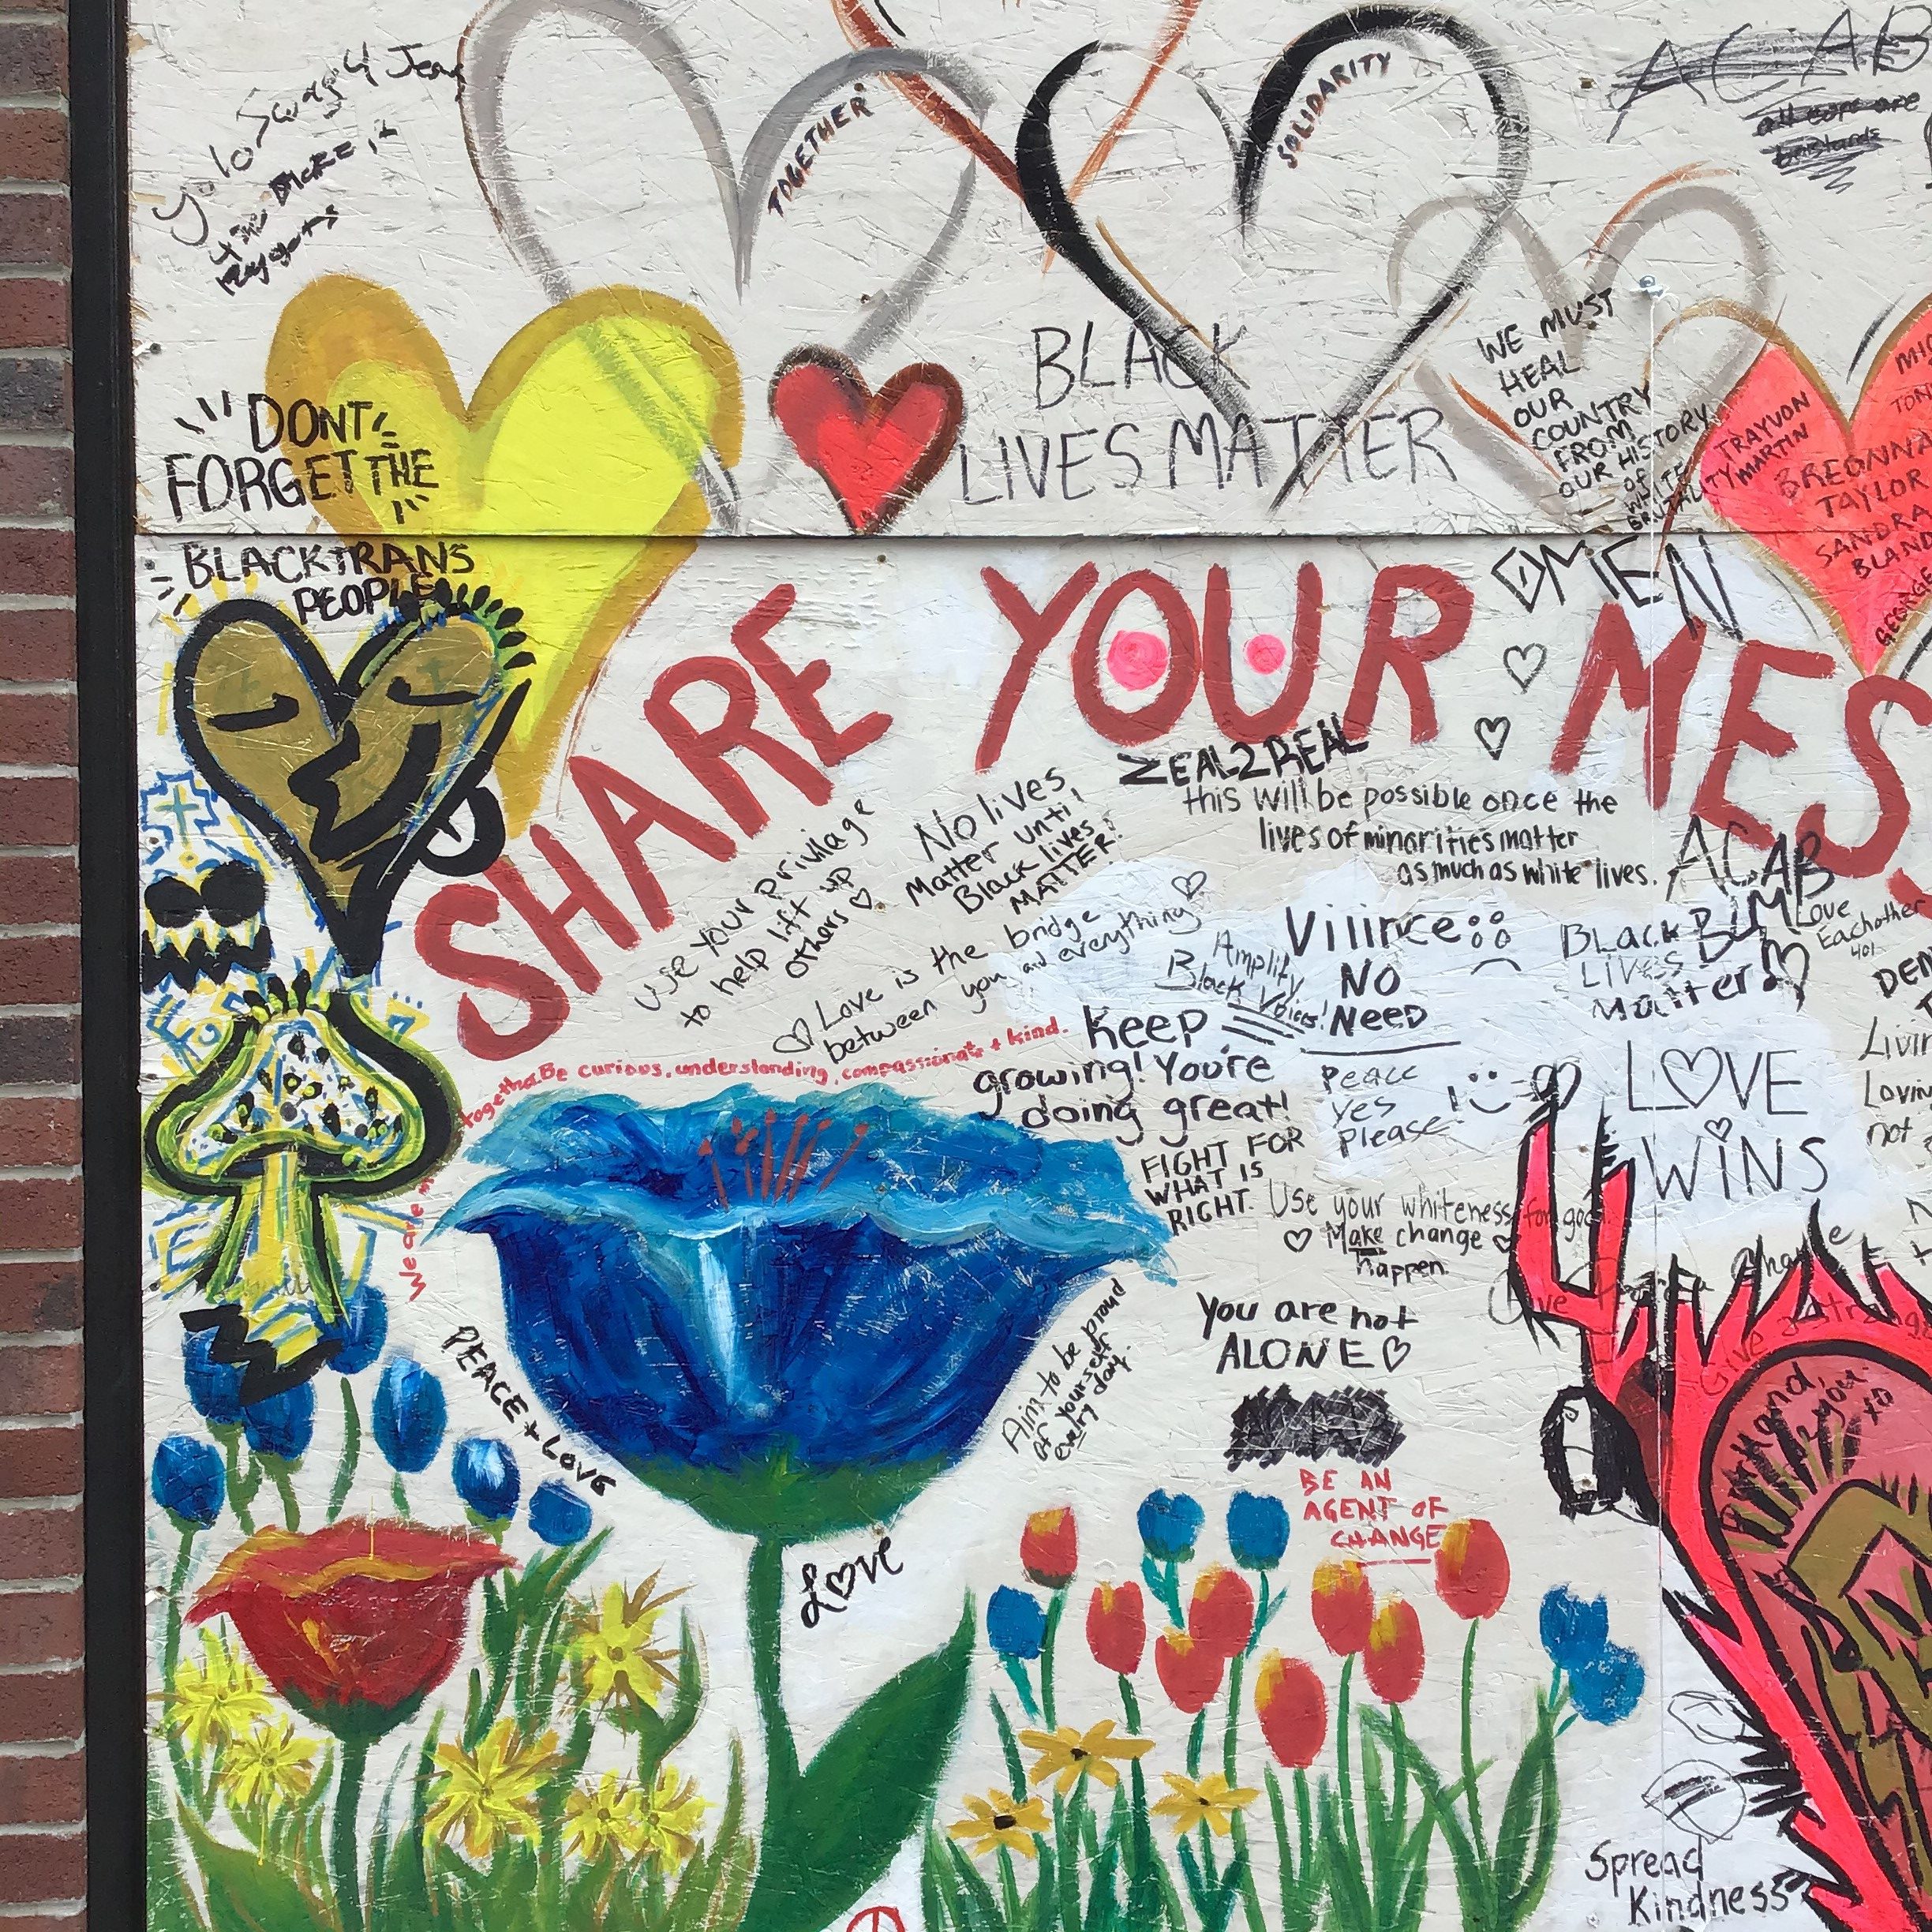 Yolo Swag 4 Jesus
TOGETHER
SOLIDARITY
ACAB
all cops are
DONT
FORGET THE
BLACK TRANS
PEOPLE
BLACK
LIVES MATTER
WE MUST
HEAL
OUR
COUNTRY
FROM
OUR HISTORY
of
WHITE
BRUTALITY
TRAYVON
MARTIN
BREONNA
TAYLOR
SANDRA
BLAND
GEORGE
OMEN
SHARE YOUR MES
ZEAL2REAL
this will be possible once the
lives of minorities matter
as much as white lives.
No lives
Matter until
Black lives
MATTER!
use your privilage
to help lift up
others
Love is the bridge
between you and everything
Amplify
Black Voices!
Viiirce
NO
NEED
Peace
yes
please!
ACAB
BLACK
LIVES
Matter!
BLM
Love
Eachother
401
LOVE
WINS
together Be curious, understanding, compassionate + kind.
We are
Keep
growing! You're
doing great!
FIGHT FOR
WHAT IS
RIGHT.
Use your whiteness for good.
Make change
happen.
You are not
ALONE
PEACE + LOVE
Aim to be proud
of yourself
every day.
BE AN
AGENT OF
CHANGE
LOVE
Spread
Kindness